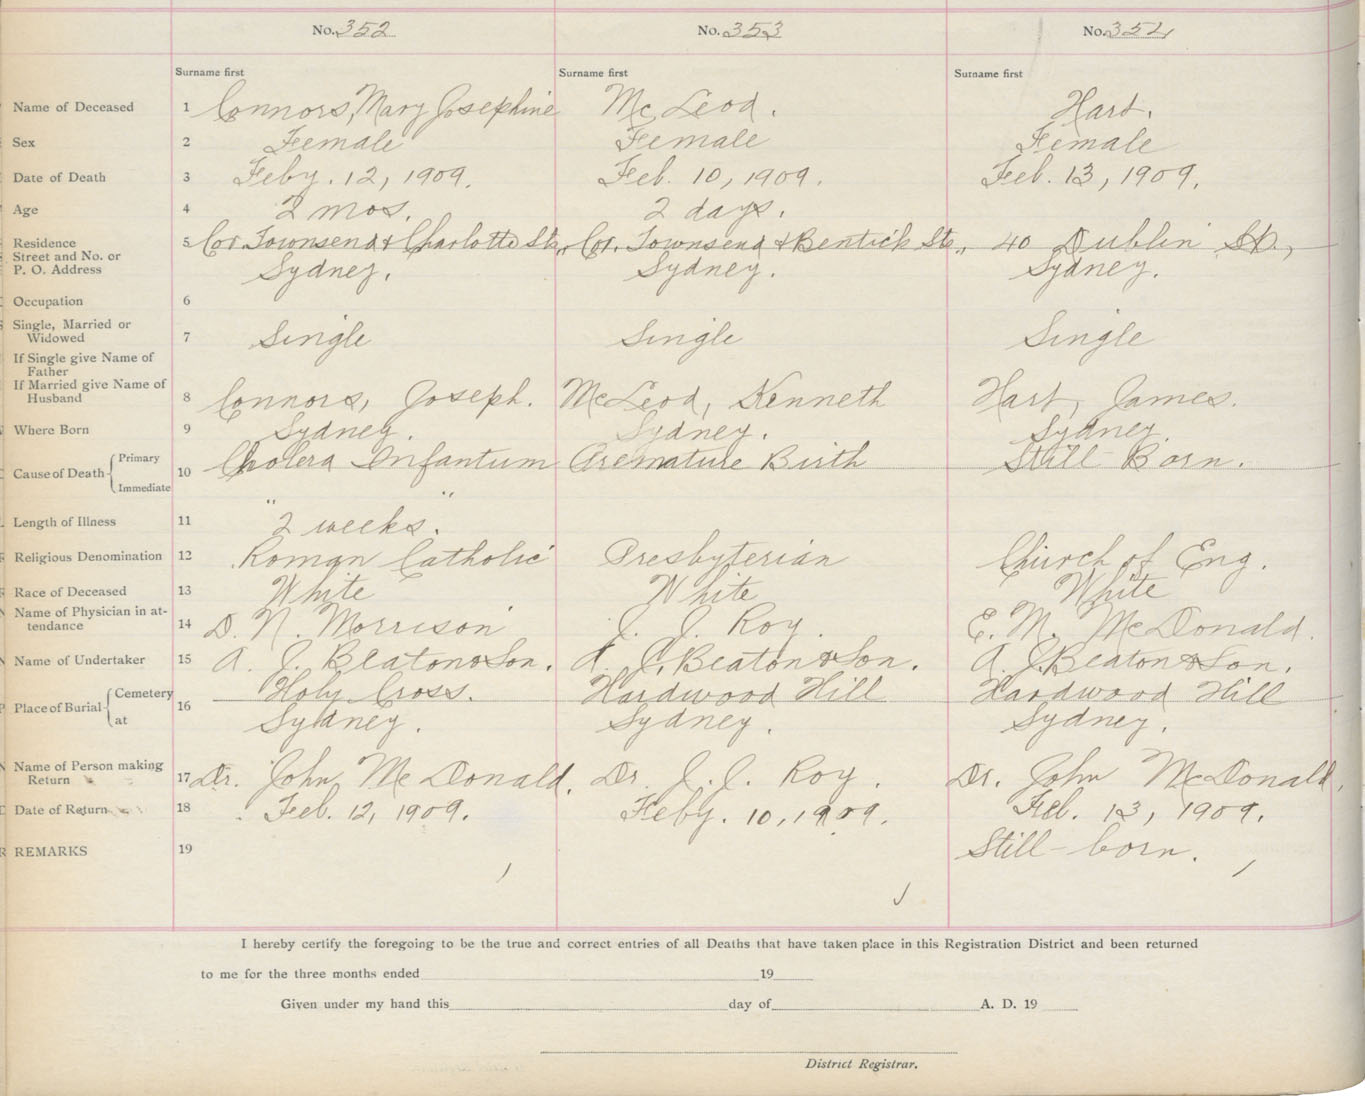 No. 352 No. 353 No. 354
Surname first Surname first Surname first
Name of Deceased 1 Connors, Mary Josephine McLeod. Hart.
Sex 2 Female Female Female
Date of Death 3 Feby. 12, 1909. Feb. 10, 1909. Feb. 13, 1909.
Age 4 2 mos. 2 days.
Residence 5 Cor. Townsend & Charlotte Sts., Cor. Townsend & Bentick Sts., 40 Dublin St.,
Street and No. or
P. O. Address Sydney. Sydney. Sydney.
Occupation 6
Single, Married or
Widowed 7 Single Single Single
If Single give Name of
Father
If Married give Name of
Husband 8 Connors, Joseph. McLeod, Kenneth Hart, James.
Where Born 9 Sydney. Sydney. Sydney.
Cause of Death Primary 10 Cholera Infantum Premature Birth Still Born.
Immediate " "
Length of Illness 11 2 weeks.
Religious Denomination 12 Roman Catholic Presbyterian Church of Eng.
Race of Deceased 13 White White White
Name of Physician in at-
tendance 14 D. N. Morrison J. J. Roy. E. M. McDonald.
Name of Undertaker 15 A. J. Beaton & Son. A. J. Beaton & Son. A. J. Beaton & Son.
Place of Burial Cemetery 16 Holy Cross. Hardwood Hill Hardwood Hill
at Sydney. Sydney. Sydney.
Name of Person making
Return 17 Dr. John McDonald. Dr. J. J. Roy. Dr. John McDonald.
Date of Return 18 Feb. 12, 1909. Feby. 10, 1909. Feb. 13, 1909.
REMARKS 19 Still-born.
I hereby certify the foregoing to be the true and correct entries of all Deaths that have taken place in this Registration District and been returned
to me for the three months ended 19
Given under my hand this day of A. D. 19
District Registrar.